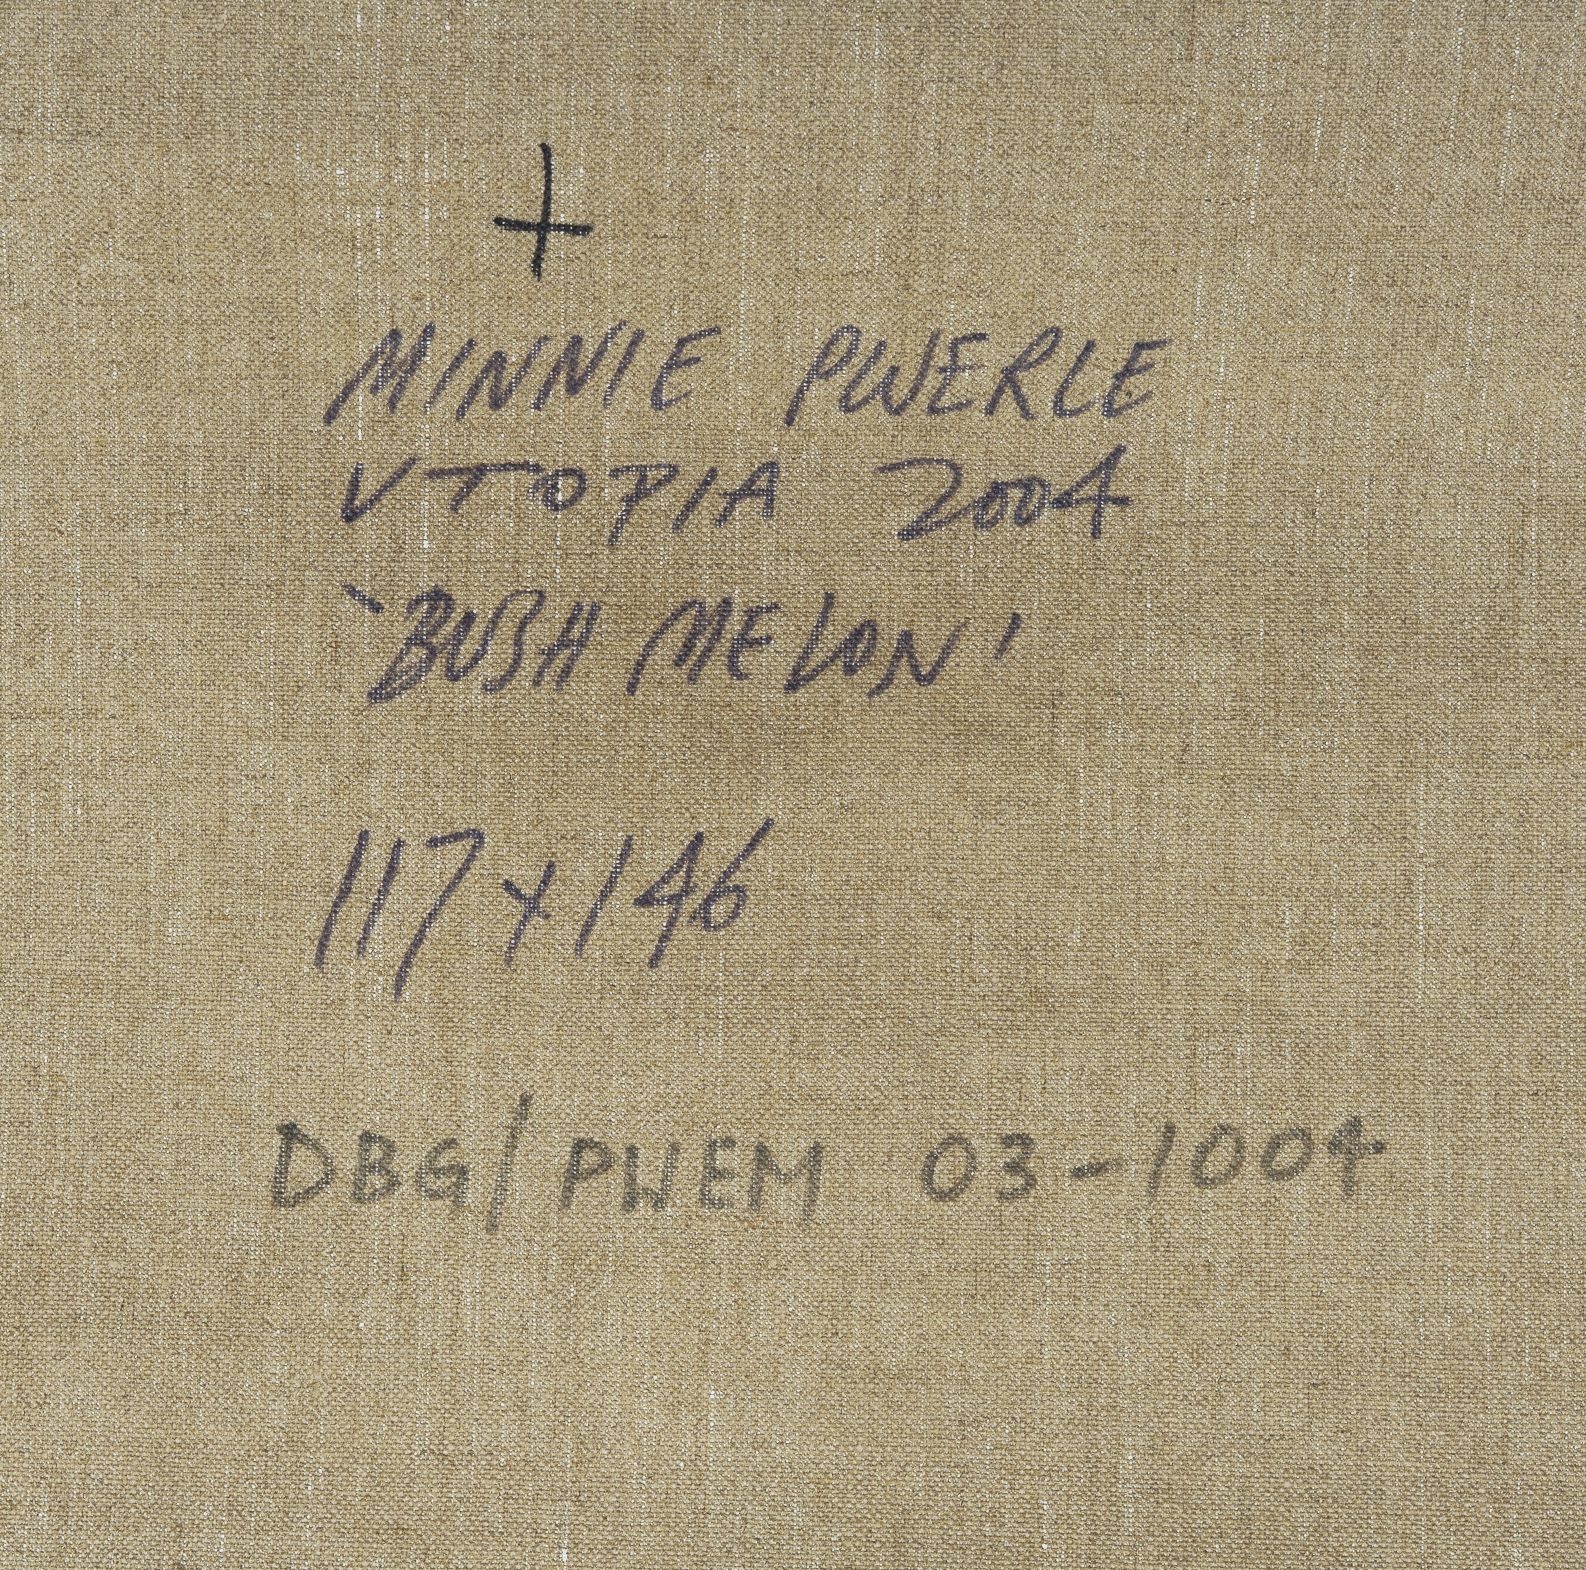 +
MINNIE PWERLE
UTOPIA 2004
'BUSH MELON'
117 x 146
DBG/PWEM 03-1004